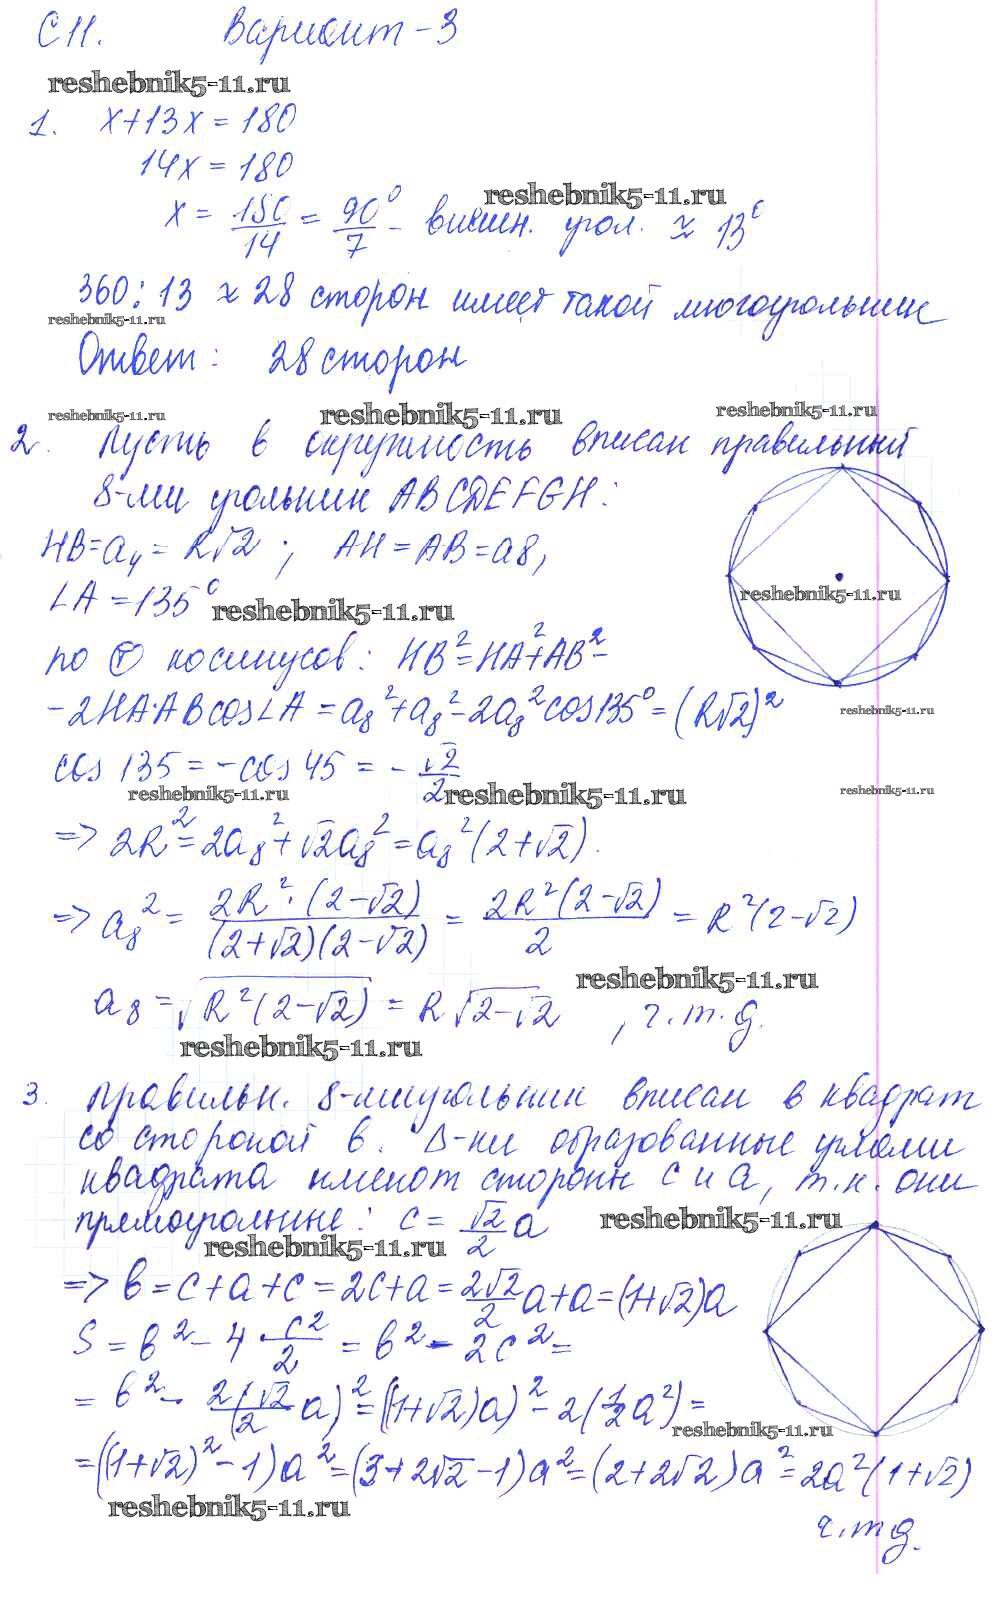 С11. Вариант-3
reshebnik5-11.ru
1. x+13x=180
14x=180
reshebnik5-11.ru
x = 180/14 = 90°/7 - внешн. угол. ≈ 13°
360:13 ≈ 28 сторон имеет такой многоугольник
reshebnik5-11.ru
Ответ: 28 сторон
reshebnik5-11.ru reshebnik5-11.ru reshebnik5-11.ru
2. Пусть в окружность вписан правильный
8-ми угольник ABCDEFGH:
HB=a₄=R√2; AH=AB=a8,
∠A=135° reshebnik5-11.ru
reshebnik5-11.ru
по Т косинусов: HB²=HA²+AB²-
-2HA·ABcos∠A=a₈²+a₈²-2a₈²cos135°=(R√2)²
reshebnik5-11.ru
cos 135=-cos 45=-√2/2
reshebnik5-11.ru reshebnik5-11.ru reshebnik5-11.ru
=> 2R²=2a₈²+√2a₈²=a₈²(2+√2).
=> a₈² = 2R²·(2-√2)/(2+√2)(2-√2) = 2R²(2-√2)/2 = R²(2-√2)
reshebnik5-11.ru
a8=√R²(2-√2) = R√2-√2, ч.т.д.
reshebnik5-11.ru
3. Правильн. 8-миугольник вписан в квадрат
со стороной в. Δ-ки образованные углами
квадрата имеют стороны с и а, т.к. они
прямоугольные: c=√2/2 a reshebnik5-11.ru
reshebnik5-11.ru
=> b=c+a+c=2c+a=2√2/2 a+a=(1+√2)a
S=b²-4·c²/2=b²-2c²=
=b²-2(√2/2 a)²=((1+√2)a)²-2(1/2a²)=
reshebnik5-11.ru
=((1+√2)²-1)a²=(3+2√2-1)a²=(2+2√2)a²=2a²(1+√2)
reshebnik5-11.ru
ч.т.д.